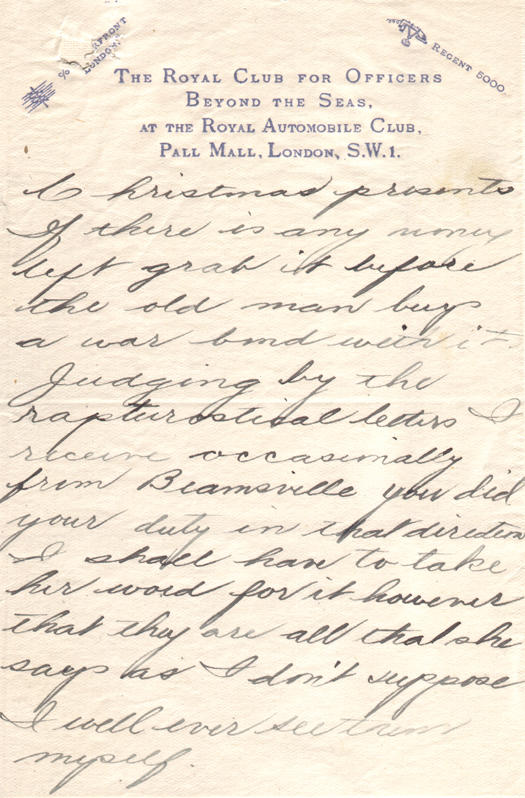 RFRONT
LONDON.
REGENT 5000.
THE ROYAL CLUB FOR OFFICERS
BEYOND THE SEAS,
AT THE ROYAL AUTOMOBILE CLUB,
PALL MALL, LONDON, S.W.1.
Christmas presents
If there is any money
left grab it before
the old man buys
a war bond with it.
Judging by the
rapturostical letters I
receive occasionally
from Beamsville you did
your duty in that direction
I shall have to take
her word for it however
that they are all that she
says as I don't suppose
I well ever see them
myself.